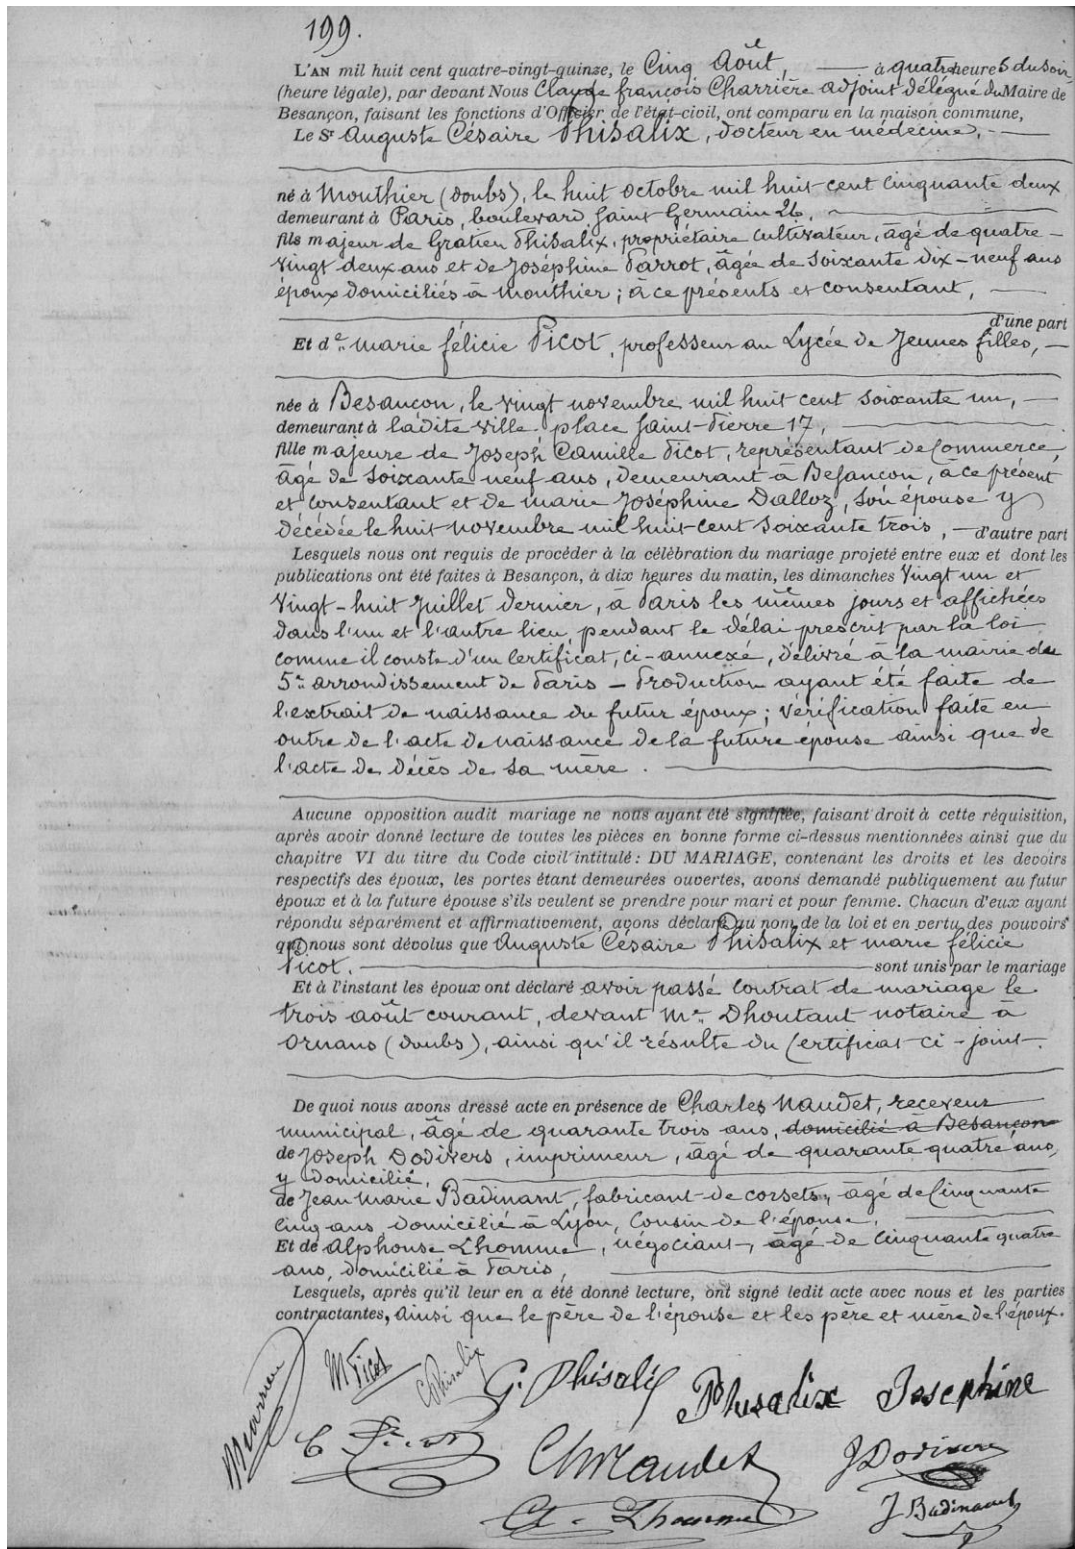 199.
L'AN mil huit cent quatre-vingt-quinze, le Cinq Août, — à quatre heures du soir
(heure légale), par devant Nous Claude françois Charrière adjoint délégué du Maire de
Besançon, faisant les fonctions d'Officier de l'état-civil, ont comparu en la maison commune,
Le Sr Auguste Césaire Phisalix, docteur en médecine, —
né à Mouthier (Doubs), le huit octobre mil huit cent cinquante deux
demeurant à Paris, boulevard Saint Germain 26, —
fils majeur de Gratien Phisalix, propriétaire cultivateur, âgé de quatre-
vingt deux ans et de Joséphine Parrot, âgée de soixante dix-neuf ans
époux domiciliés à Mouthier ; à ce présents et consentant, —
d'une part
Et de. Marie félicie Picot, professeur au Lycée de Jeunes filles, —
née à Besançon, le vingt novembre mil huit cent soixante un, —
demeurant à ladite ville place Saint-Pierre 17, —
fille majeure de Joseph Camille Picot, représentant de Commerce,
âgé de soixante neuf ans, demeurant à Besançon, à ce présent
et consentant et de Marie Joséphine Dalloz, son épouse y
décédée le huit novembre mil huit cent soixante trois, — d'autre part
Lesquels nous ont requis de procéder à la célébration du mariage projeté entre eux et dont les
publications ont été faites à Besançon, à dix heures du matin, les dimanches vingt un et
vingt-huit Juillet dernier, à Paris les mêmes jours et affichées
dans l'un et l'autre lieu, pendant le délai prescrit par la loi
comme il conste d'un certificat, ci-annexé, délivré à la mairie du
5e arrondissement de Paris — Production ayant été faite de
l'extrait de naissance du futur époux ; vérification faite en
outre de l'acte de naissance de la future épouse ainsi que de
l'acte de décès de sa mère. —
Aucune opposition audit mariage ne nous ayant été signifiée, faisant droit à cette réquisition,
après avoir donné lecture de toutes les pièces en bonne forme ci-dessus mentionnées ainsi que du
chapitre VI du titre du Code civil intitulé : DU MARIAGE, contenant les droits et les devoirs
respectifs des époux, les portes étant demeurées ouvertes, avons demandé publiquement au futur
époux et à la future épouse s'ils veulent se prendre pour mari et pour femme. Chacun d'eux ayant
répondu séparément et affirmativement, avons déclaré au nom de la loi et en vertu des pouvoirs
qui nous sont dévolus que Auguste Césaire Phisalix et Marie félicie
Picot. — sont unis par le mariage
Et à l'instant les époux ont déclaré avoir passé contrat de mariage le
trois août courant, devant Me Dhoutant notaire à
Ornans (Doubs), ainsi qu'il résulte du Certificat ci-joint.
De quoi nous avons dressé acte en présence de Charles Naudet, receveur
municipal, âgé de quarante trois ans, domicilié à Besançon
de Joseph Dodivers, imprimeur, âgé de quarante quatre ans,
y domicilié,
de Jean Marie Badinant, fabricant de corsets, âgé de Cinquante
Cinq ans domicilié à Lyon, Cousin de l'épouse, —
Et de Alphonse Lhomme, négociant, âgé de cinquante quatre
ans, domicilié à Paris, —
Lesquels, après qu'il leur en a été donné lecture, ont signé ledit acte avec nous et les parties
contractantes, ainsi que le père de l'épouse et les père et mère de l'époux.
M Picot C Phisalix G. Phisalix Phisalix Josephine
C Picot Ch Naudet J Dodivers
A. Lhomme J. Badinant